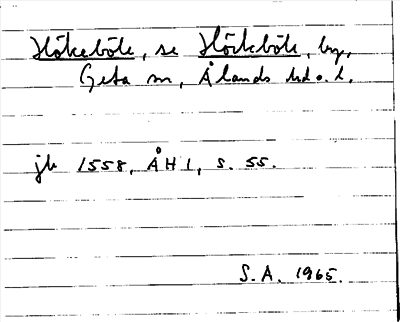 Hökeböle, se Höckböle, by,
Geta sn, Ålands hd o. l.
jb 1558, ÅH 1, s. 55.
S.A. 1965.